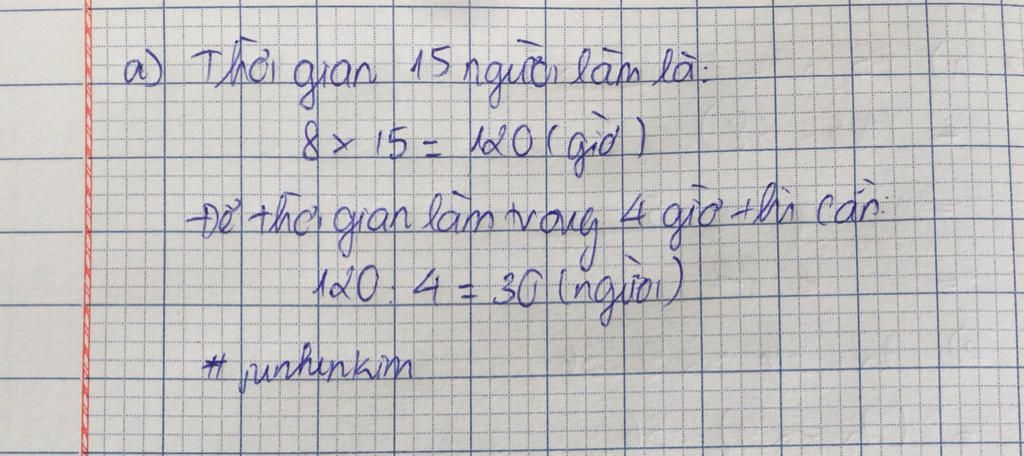 a) Thời gian 15 người làm là:
8 x 15 = 120 (giờ)
Để thời gian làm trong 4 giờ thì cần:
120 : 4 = 30 (người)
# junhinkim